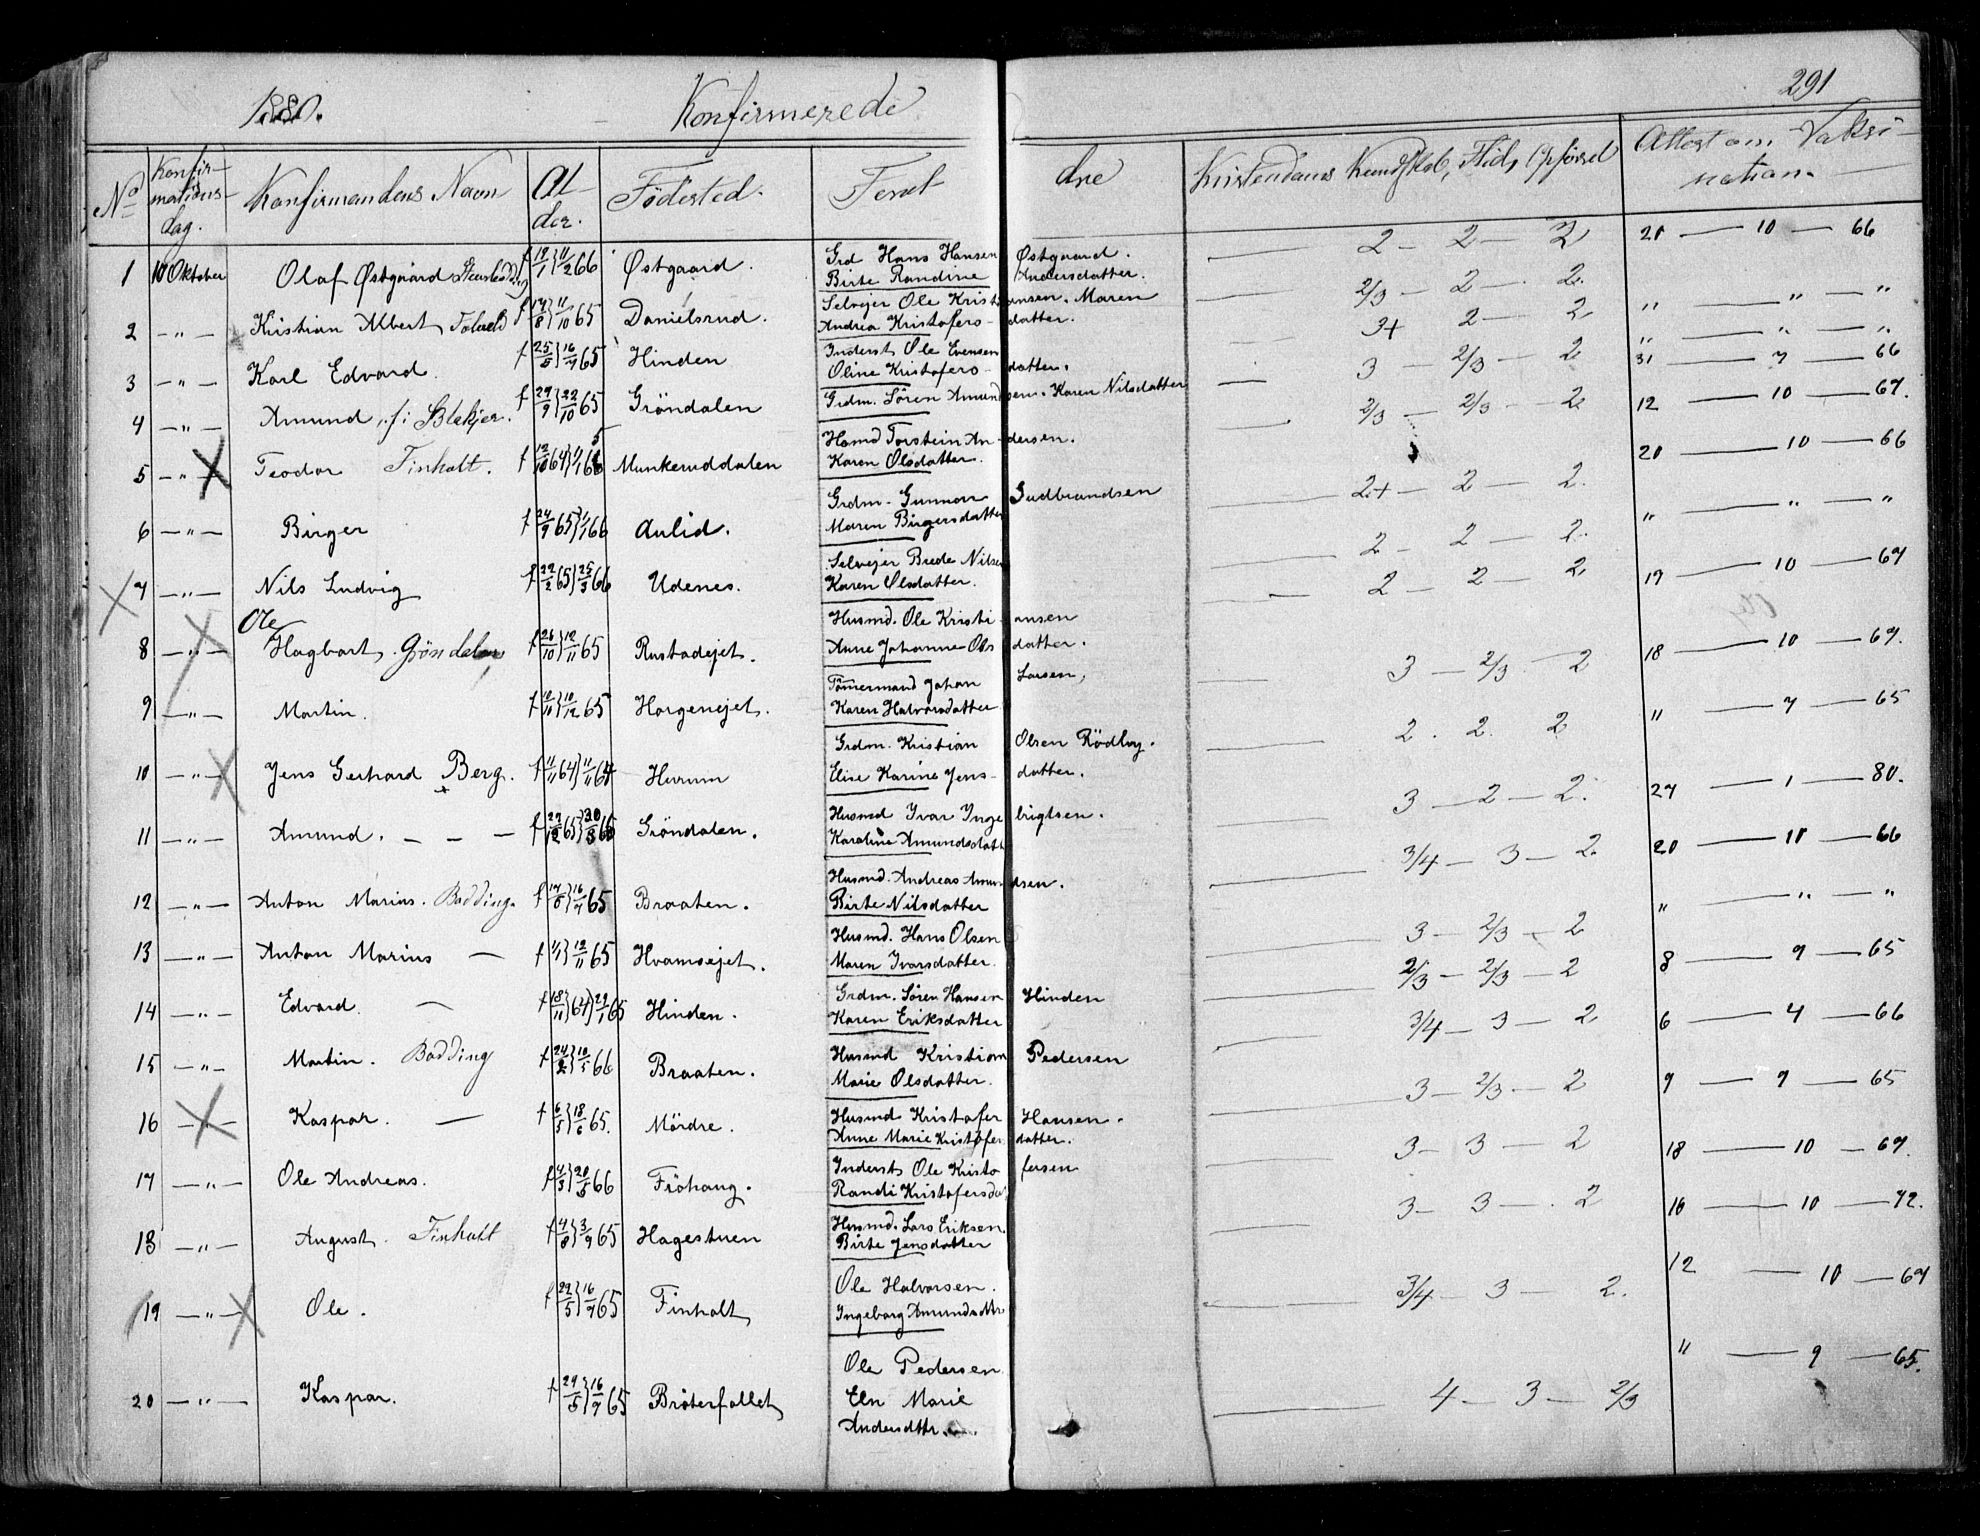 1880. Konfirmerede 291
No Konfirmationsdag. Konfirmandens Navn Alder. Födested. Foreldre Kristendoms Kundskab, Flid, Opførsel Attest om Vaksination.
1 10 Oktober Olaf Østgaard f 19/1 } 11/2 66 Østgaard. Grd Hans Hansen Østgaard. 2 — 2 — 2 20 — 10 — 66
Birte Randine Andersdatter.
2 — " — Kristian Albert f 14/8 } 11/10 65 Danielsrud. Selvejer Ole Kristiansen. Maren 2/3 — 2 — 2 " — " — "
Andrea Kristofers-datter.
3 — " — Karl Edvard. f 25/5 } 16/7 65 Hinden Inderst Ole Evensen 3+ 2 — 2 " — " — "
Oline Kristofers-datter.
4 — " — Amund Blekjer. f 29/9 } 22/10 65 Gröndalen Grdm. Sören Amundsen. Karen Nilsdatter 3 — 2/3 — 2 31 — 7 — 66
5 — " — Teodor Finholt. f 12/10 64 } 1/1 65 Munkeruddalen Hsmd Torstein Andersen. 2/3 — 2/3 — 2 12 — 10 — 67.
Karen Olsdatter.
6 — " — Birger f 24/9 65 } 1/1 66 Aulid. Grdm. Gunnar Gudbrandsen 2+ — 2 — 2. 20 — 10 — 66
Maren Birgersdatter
7 — " — Nils Ludvig f 22/2 65 } 25/3 66 Udenes. Selvejer Brede Nilsen 2 — 2 — 2. " — " — "
Karen Olsdatter.
8 — " — Ole Hagbart Gröndalen f 26/10 } 12/11 65 Rustadejet. Husmd. Ole Kristiansen 2 — 2 — 2 19 — 10 — 67
Anne Johanne Olsdatter.
9 — " — Martin. f 10/10 } 10/12 65 Horgenejet. Tömermand Johan Larsen, 3 — 2/3 — 2 18 — 10 — 67.
Karen Halvorsdatter
10 — " — Jens Gerhard Berg. f 11/11 64 } 11/11 64 Hurum Grdm. Kristian Olsen Rödby. 2. 2. 2 " — 7 — 65
Elise Karine Jens-datter.
11 — " — Amund. — — f 27/12 65 } 30/3 66 Gröndalen. Husmd Ivar Ingebrigtsen. 3 — 2 — 2. 27 — 1 — 80.
Karoline Amundsdatt
12 — " — Anton Marius. Bodding. f 14/6 } 16/7 65 Braaten. Husmd. Andreas Amundsen. 3/4 — 3 — 2. 20 — 10 — 66
Birte Nilsdatter
13 — " — Anton Marius — f 1/1 } 12/11 65 Hvamsejet. Husmd. Hans Olsen 3 — 2/3 — 2 " — " — "
Maren Ivarsdatter.
14 — " — Edvard. — f 18/11 64 } 29/1 65 Hinden. Grdm. Sören Hansen Hinden 2/3 — 2/3 — 2 8 — 9 — 65
Karen Eriksdatter
15 — " — Martin. Bodding f 24/2 } 10/5 66 Braaten. Husmd Kristian Pedersen 3/4 — 3 — 2 6 — 4 — 66
Marie Olsdatter.
16 — " — Kaspar. — f 6/5 } 18/6 65. Mördre. Husmd Kristofer Hansen. 3 — 2/3 — 2 9 — 9 — 65
Anne Marie Kristoferdatter.
17 — " — Ole Andreas. f 4/3 } 20/5 66 Fröhaug. Inderst Ole Kristofersen 3 — 3 — 2 18 — 10 — 67.
Randi Kristofersdat
18 — " — August. Finholt f 4/8 } 3/9 65 Hagestuen Husmd. Lars Eriksen. 3 — 3 — 2 16 — 10 — 72.
Birte Jensdatter
19 — " — Ole. f 29/5 } 16/7 65 Finholt Ole Halvorsen. 3/4 — 3 — 2. 12 — 10 — 67
Ingeborg Amundsdttr
20 — " — Kaspar. f 29/5 } 16/7 65 Bröterfallet Ole Pedersen 4 — 3 — 2/3 " — 9 — 65.
Eln Marie
Andersdttr.